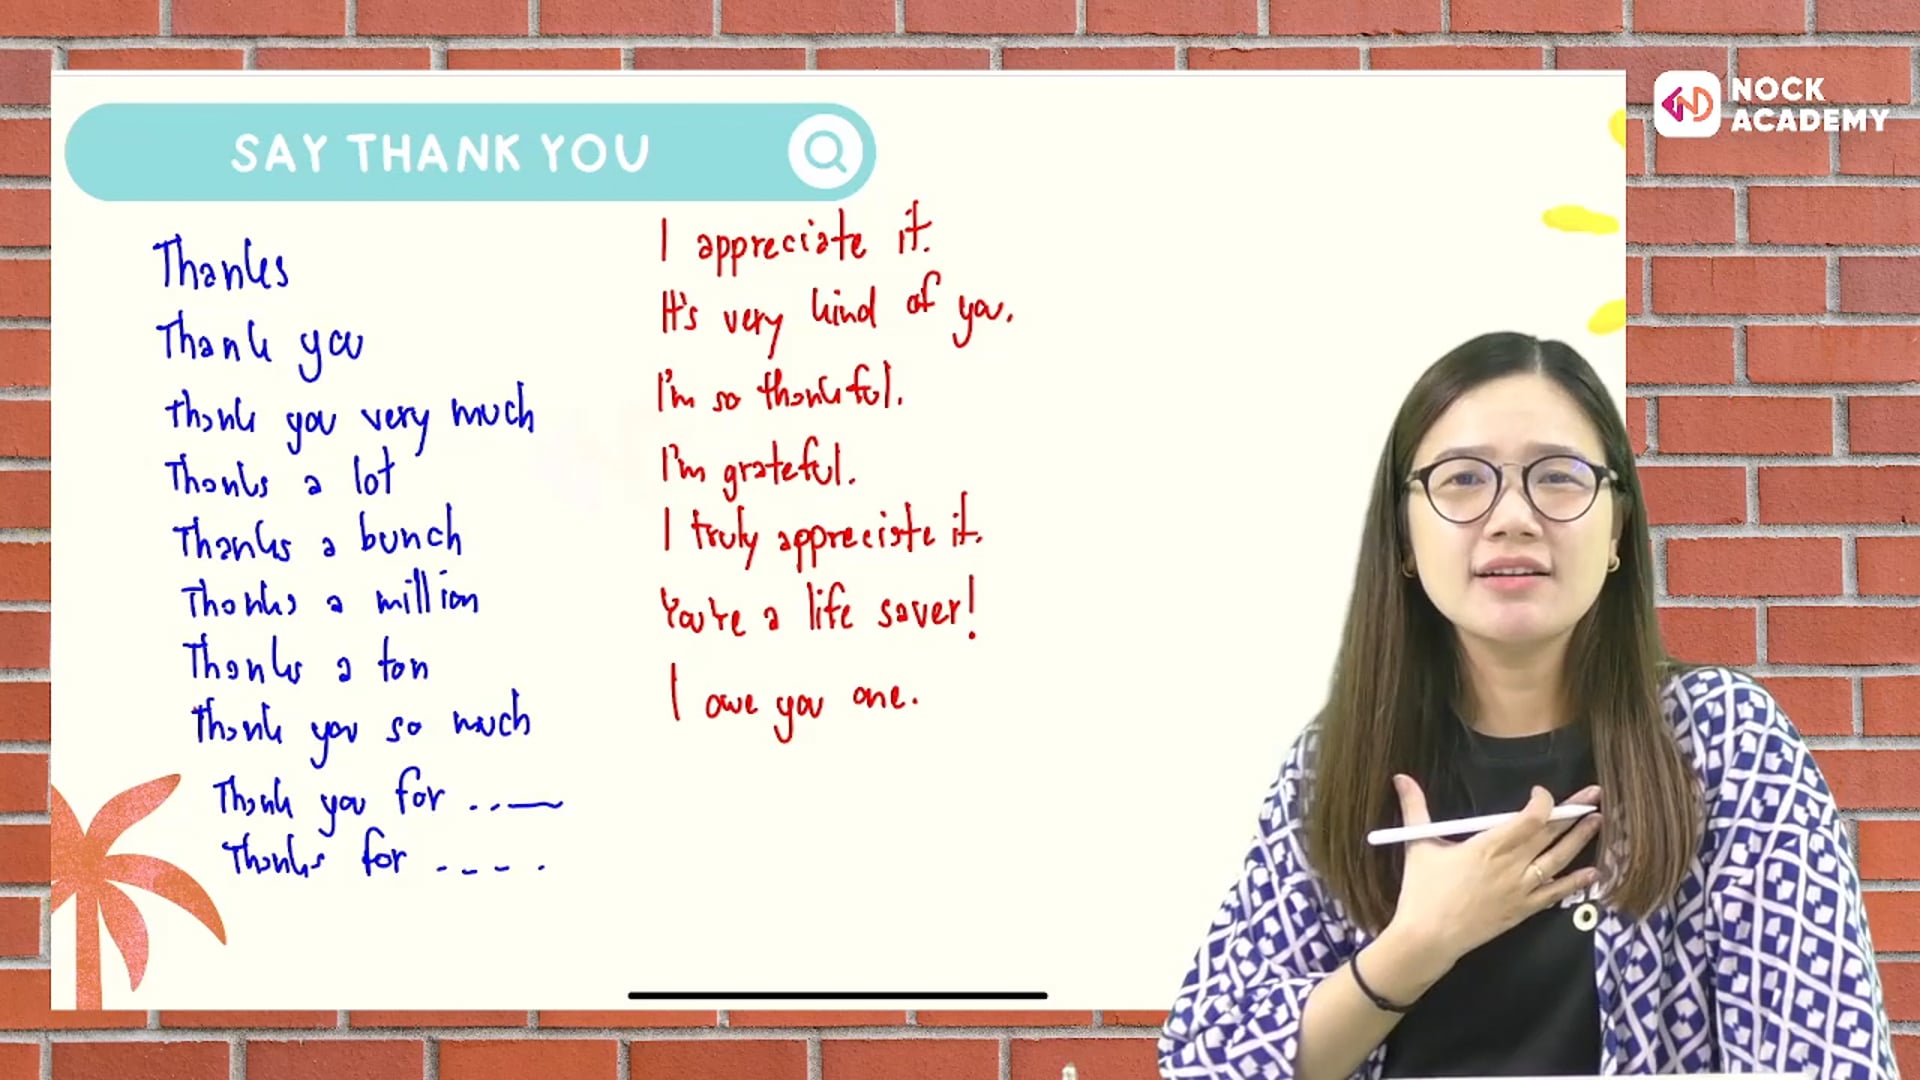 SAY THANK YOU
NOCK
ACADEMY
Thanks
Thank you
Thank you very much
Thanks a lot
Thanks a bunch
Thanks a million
Thanks a ton
Thank you so much
Thank you for ..__
Thanks for ----.
I appreciate it.
It's very kind of you.
I'm so thankful.
I'm grateful.
I truly appreciate it.
You're a life saver!
I owe you one.